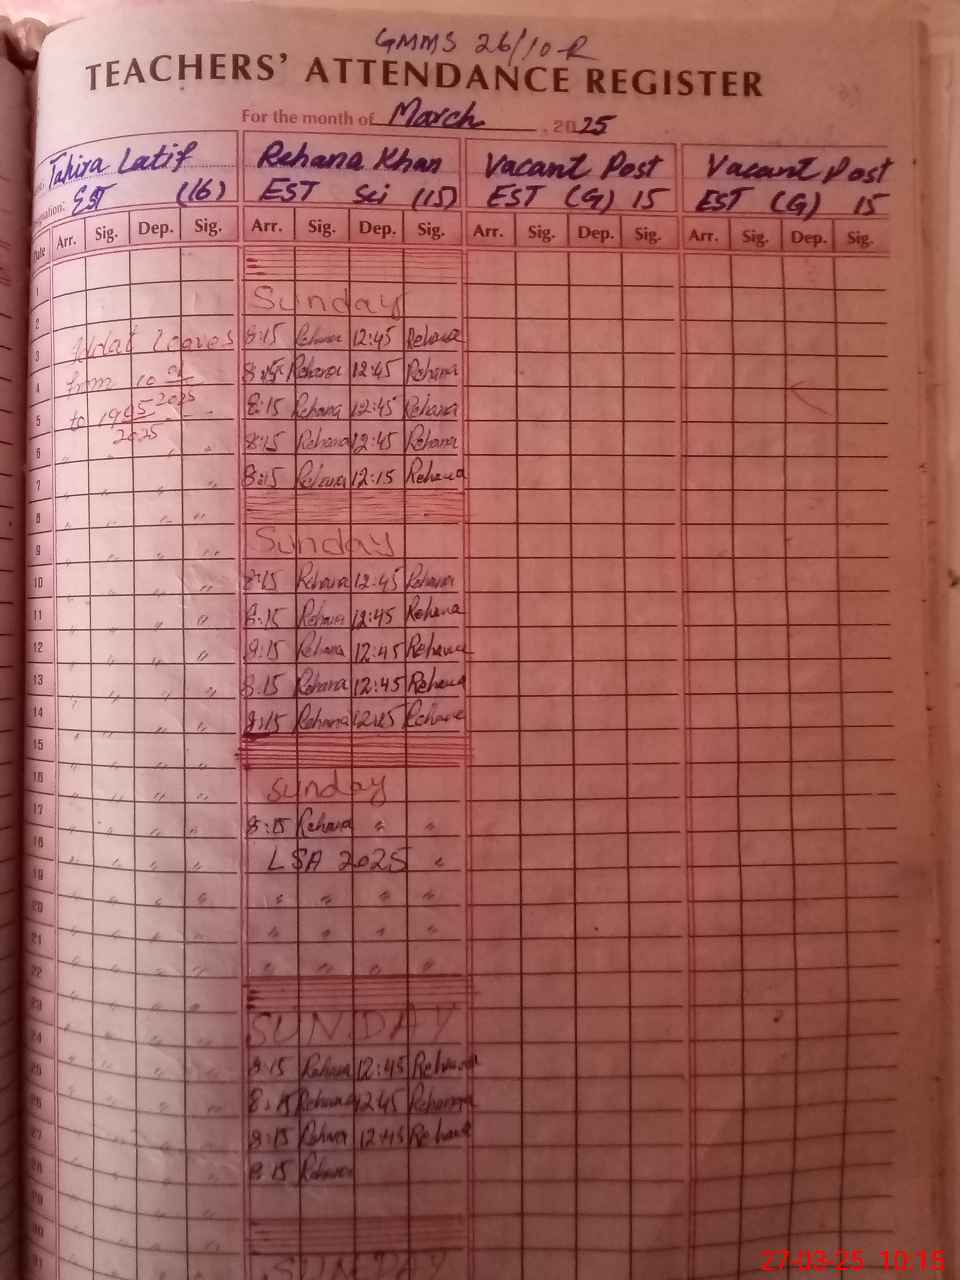 GMMS 26/10-R
TEACHERS' ATTENDANCE REGISTER
For the month of March , 2025
Tahira Latif Rehana Khan Vacant Post Vacant Post
EST (16) EST Sci (15) EST (G) 15 EST (G) 15
Date Arr. Sig. Dep. Sig. Arr. Sig. Dep. Sig. Arr. Sig. Dep. Sig. Arr. Sig. Dep. Sig.
1
Sunday
2
Iddat leaves 8:15 Rehana 12:45 Rehana
3
from 10 2025 8:15 Rehana 12:45 Rehana
4
to 19 05 2025 8:15 Rehana 12:45 Rehana
5
8:15 Rehana 12:45 Rehana
6
8:15 Rehana 12:15 Rehana
7
8
Sunday
9
8:15 Rehana 12:45 Rehana
10
8:15 Rehana 12:45 Rehana
11
8:15 Rehana 12:45 Rehana
12
8:15 Rehana 12:45 Rehana
13
8:15 Rehana 12:45 Rehana
14
15
Sunday
16
8:15 Rehana " "
17
LSA 2025 "
18
" " " "
19
" " " "
20
" " " "
21
22
SUNDAY
23
8:15 Rehana 12:45 Rehana
24
8:15 Rehana 12:45 Rehana
25
8:15 Rehana 12:45 Rehana
26
8:15 Rehana
27
28
29
SUNDAY
30
31
27-03-25 10:15